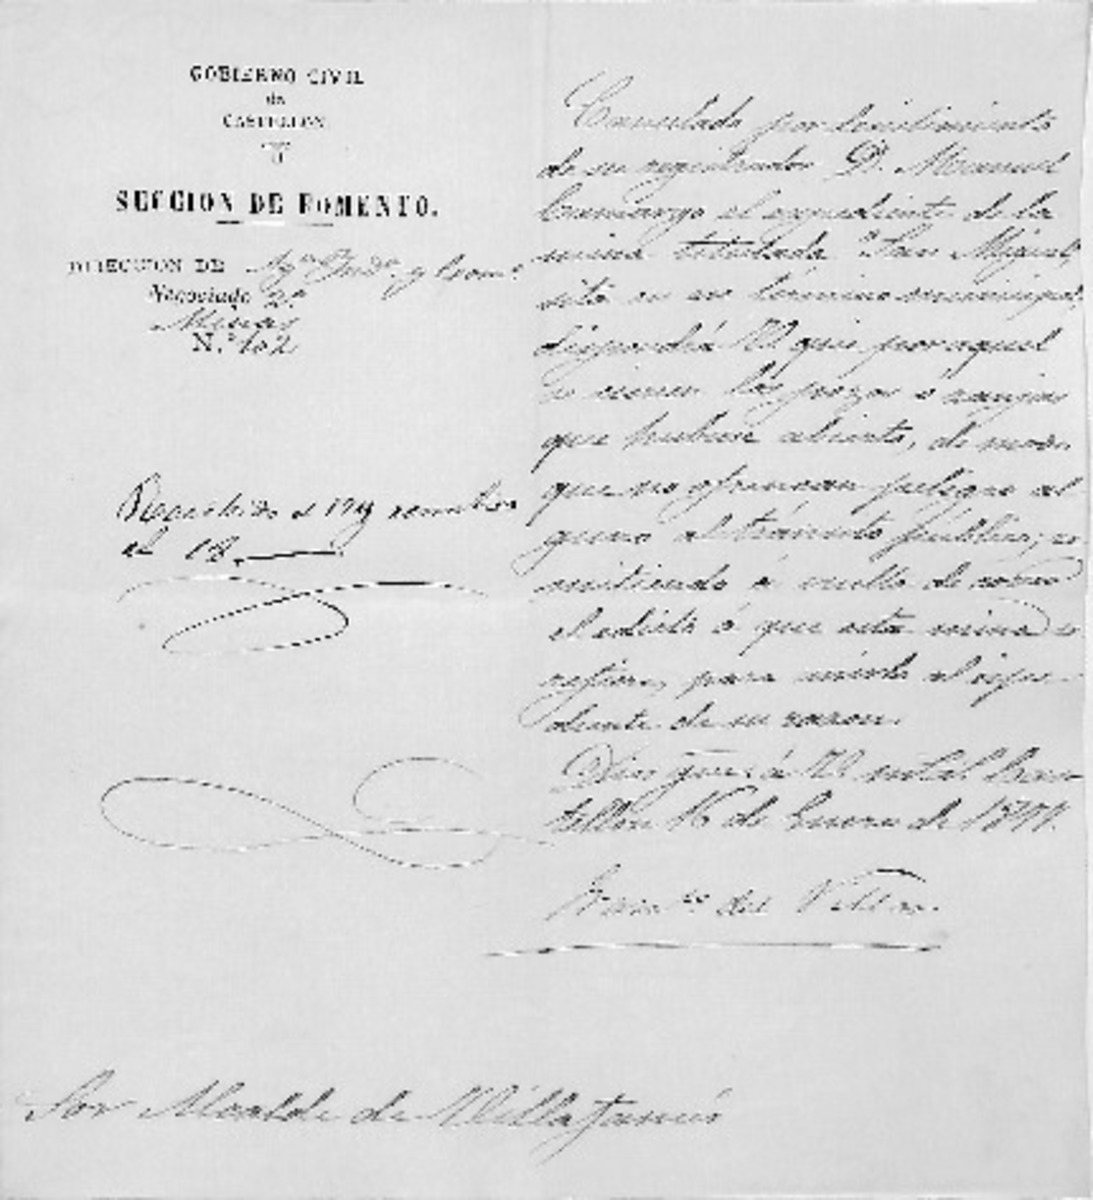 GOBIERNO CIVIL
de
CASTELLON
SECCION DE FOMENTO.
DIRECCION DE Agª Indª y Comº
Negociado 2º
Minas
N.º 102
Recibido el 17 y
el 18.
Cancelado por
de su registrador D. Manuel
Camargo el expediente de la
mina titulada "San Miguel,
sita en su término municipal,
dispondrá V. que por aquel
se cierren los pozos o zanjas
que hubiere abierto, de modo
que no ofrezcan peligro al
guno al tránsito público; re
mitiendo á vuelta de correo
el edicto á que esta mina se
refiere, para unirlo al espe
diente de su razon.
Dios gue á V. Cas
tellon 16 de Enero de 1871.
del Villar.
Sor Alcalde de Villafamés